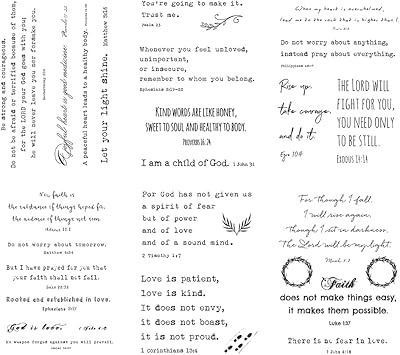 Be strong and courageous.
Do not be afraid or terrified because of them,
for the LORD your God goes with you;
he will never leave you nor forsake you.
Deuteronomy 31:6
Joyful heart is good medicine
A peaceful heart leads to a healthy body.
Let your light shine.
Matthew 5:16
You're going to make it.
Trust me.
Psalm 23
Whenever you feel unloved,
unimportant,
or insecure,
remember to whom you belong.
Ephesians 2:19-22
KIND WORDS ARE LIKE HONEY,
SWEET TO SOUL AND HEALTHY TO BODY.
PROVERBS 16:24
I am a child of God. 1 John 3:1
When my heart is overwhelmed,
lead me to the rock that is higher than I.
Do not worry about anything,
instead pray about everything.
Philippians 4:6-7
Rise up,
take courage,
and do it.
Ezra 10:4
THE LORD WILL
FIGHT FOR YOU,
YOU NEED ONLY
TO BE STILL.
EXODUS 14:14
Now faith is
the substance of things hoped for,
the evidence of things not seen.
Hebrews 11:1
Do not worry about tomorrow.
Matthew 6:34
But I have prayed for you that
your faith shall not fail.
Luke 22:32
Rooted and established in love.
Ephesians 3:17
God is love
No weapon forged against you will prevail.
For God has not given us
a spirit of fear
but of power
and of love
and of a sound mind.
2 Timothy 1:7
Love is patient,
love is kind.
It does not envy,
it does not boast,
it is not proud.
1 Corinthians 13:4
For though I fall,
I will rise again,
Though I sit in darkness,
The Lord will be my light.
Micah 7:8
Faith
does not make things easy,
it makes them possible.
Luke 1:37
There is no fear in love.
1 John 4:18